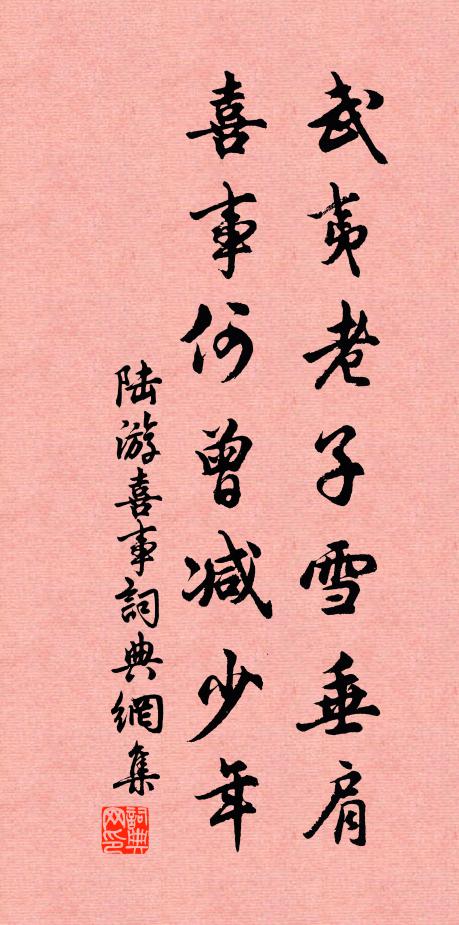 武夷老子雪垂肩
喜事何曾減少年
陆游喜事詞典網集
詞典网印